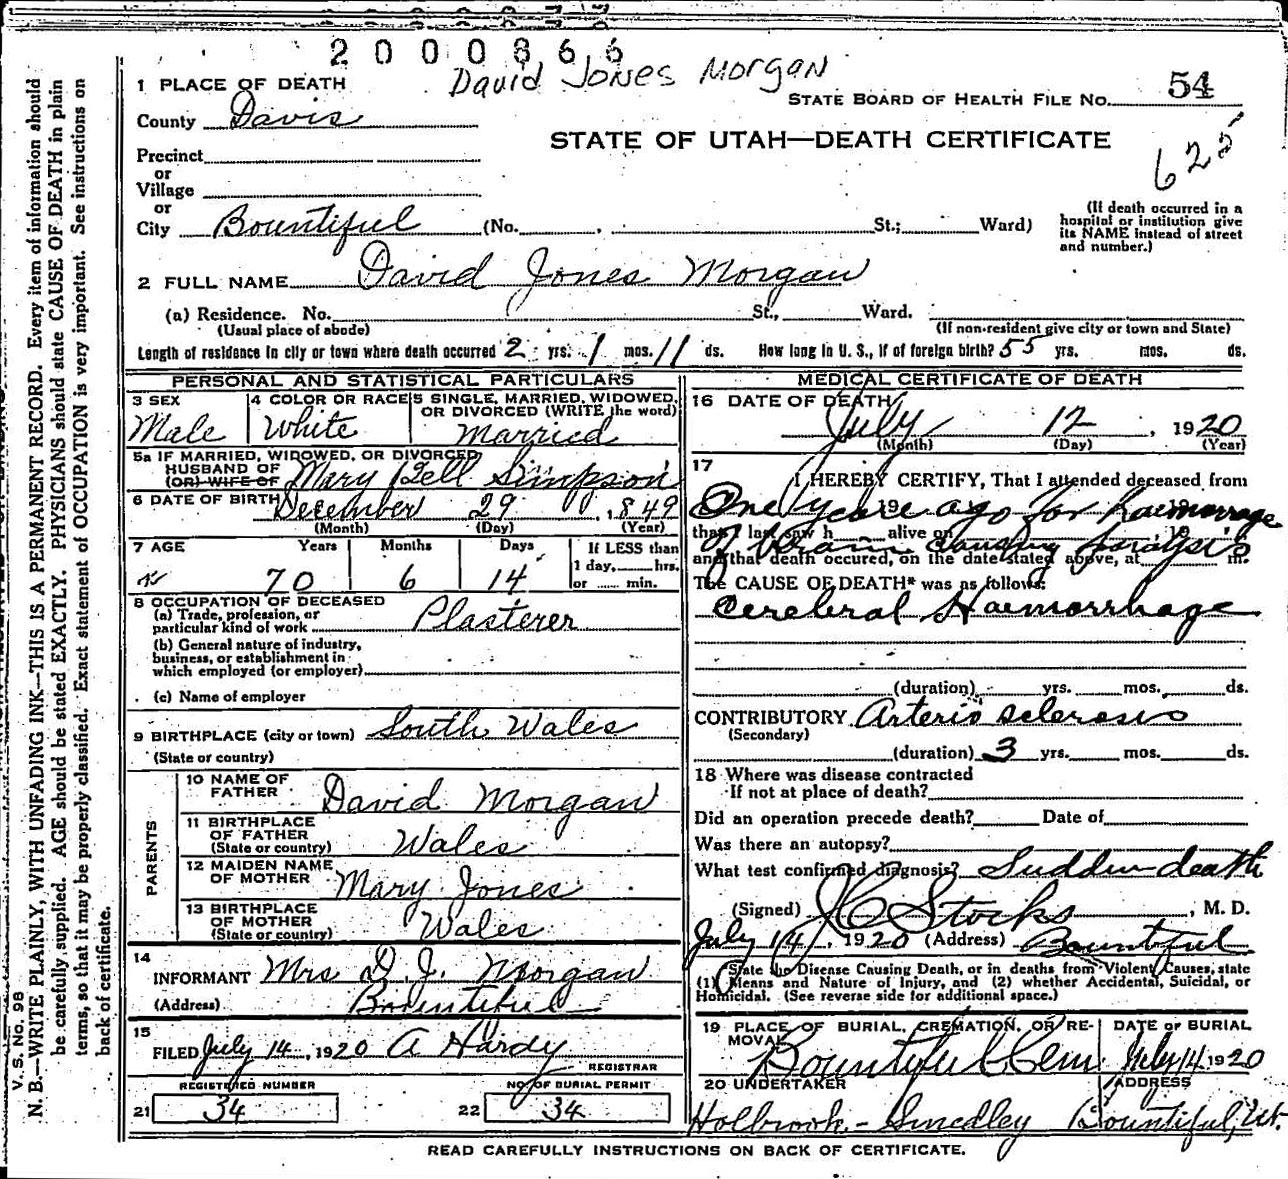 2000866
David Jones Morgan
1 PLACE OF DEATH
STATE BOARD OF HEALTH FILE No. 54
County Davis
STATE OF UTAH—DEATH CERTIFICATE
625
Precinct
or
Village
or
City Bountiful (No. St.; Ward)
(If death occurred in a
hospital or institution give
its NAME instead of street
and number.)
2 FULL NAME David Jones Morgan
(a) Residence. No. St., Ward.
(Usual place of abode) (If non-resident give city or town and State)
Length of residence in city or town where death occurred 2 yrs. 1 mos. 11 ds. How long in U. S., if of foreign birth? 55 yrs. mos. ds.
PERSONAL AND STATISTICAL PARTICULARS
3 SEX 4 COLOR OR RACE 5 SINGLE, MARRIED, WIDOWED,
OR DIVORCED (WRITE the word)
Male White Married
5a IF MARRIED, WIDOWED, OR DIVORCED
HUSBAND OF
(OR) WIFE OF Mary Bell Simpson
6 DATE OF BIRTH December 29, 1849
(Month) (Day) (Year)
7 AGE Years Months Days If LESS than
1 day, hrs.
70 6 14 or min.
8 OCCUPATION OF DECEASED
(a) Trade, profession, or
particular kind of work Plasterer
(b) General nature of industry,
business, or establishment in
which employed (or employer)
(c) Name of employer
9 BIRTHPLACE (city or town) South Wales
(State or country)
PARENTS
10 NAME OF
FATHER David Morgan
11 BIRTHPLACE
OF FATHER
(State or country) Wales
12 MAIDEN NAME
OF MOTHER Mary Jones
13 BIRTHPLACE
OF MOTHER
(State or country) Wales
14
INFORMANT Mrs D. J. Morgan
(Address) Bountiful
15
FILED July 14, 1920 A Hardy
REGISTRAR
REGISTERED NUMBER NO. OF BURIAL PERMIT
21 34 22 34
MEDICAL CERTIFICATE OF DEATH
16 DATE OF DEATH
July 12, 1920
(Month) (Day) (Year)
17
I HEREBY CERTIFY, That I attended deceased from
One year ago for haemorrage
19 19
that I last saw h alive on 19
of brain causing paralysis
and that death occured, on the date stated above, at m.
The CAUSE OF DEATH* was as follows:
Cerebral Haemorrhage
(duration) yrs. mos. ds.
CONTRIBUTORY Arterio sclerosis
(Secondary)
(duration) 3 yrs. mos. ds.
18 Where was disease contracted
If not at place of death?
Did an operation precede death? Date of
Was there an autopsy?
What test confirmed diagnosis? Sudden death
(Signed) J C Stocks, M. D.
July 14, 1920 (Address) Bountiful
State the Disease Causing Death, or in deaths from Violent Causes, state
(1) Means and Nature of Injury, and (2) whether Accidental, Suicidal, or
Homicidal. (See reverse side for additional space.)
19 PLACE OF BURIAL, CREMATION, OR RE-
MOVAL DATE OF BURIAL
Bountiful Cem. July 14 1920
20 UNDERTAKER ADDRESS
Holbrook - Smedley Bountiful, Ut.
READ CAREFULLY INSTRUCTIONS ON BACK OF CERTIFICATE.
V. S. No. 98
N. B.—WRITE PLAINLY, WITH UNFADING INK—THIS IS A PERMANENT RECORD. Every item of information should
be carefully supplied. AGE should be stated EXACTLY. PHYSICIANS should state CAUSE OF DEATH in plain
terms, so that it may be properly classified. Exact statement of OCCUPATION is very important. See instructions on
back of certificate.